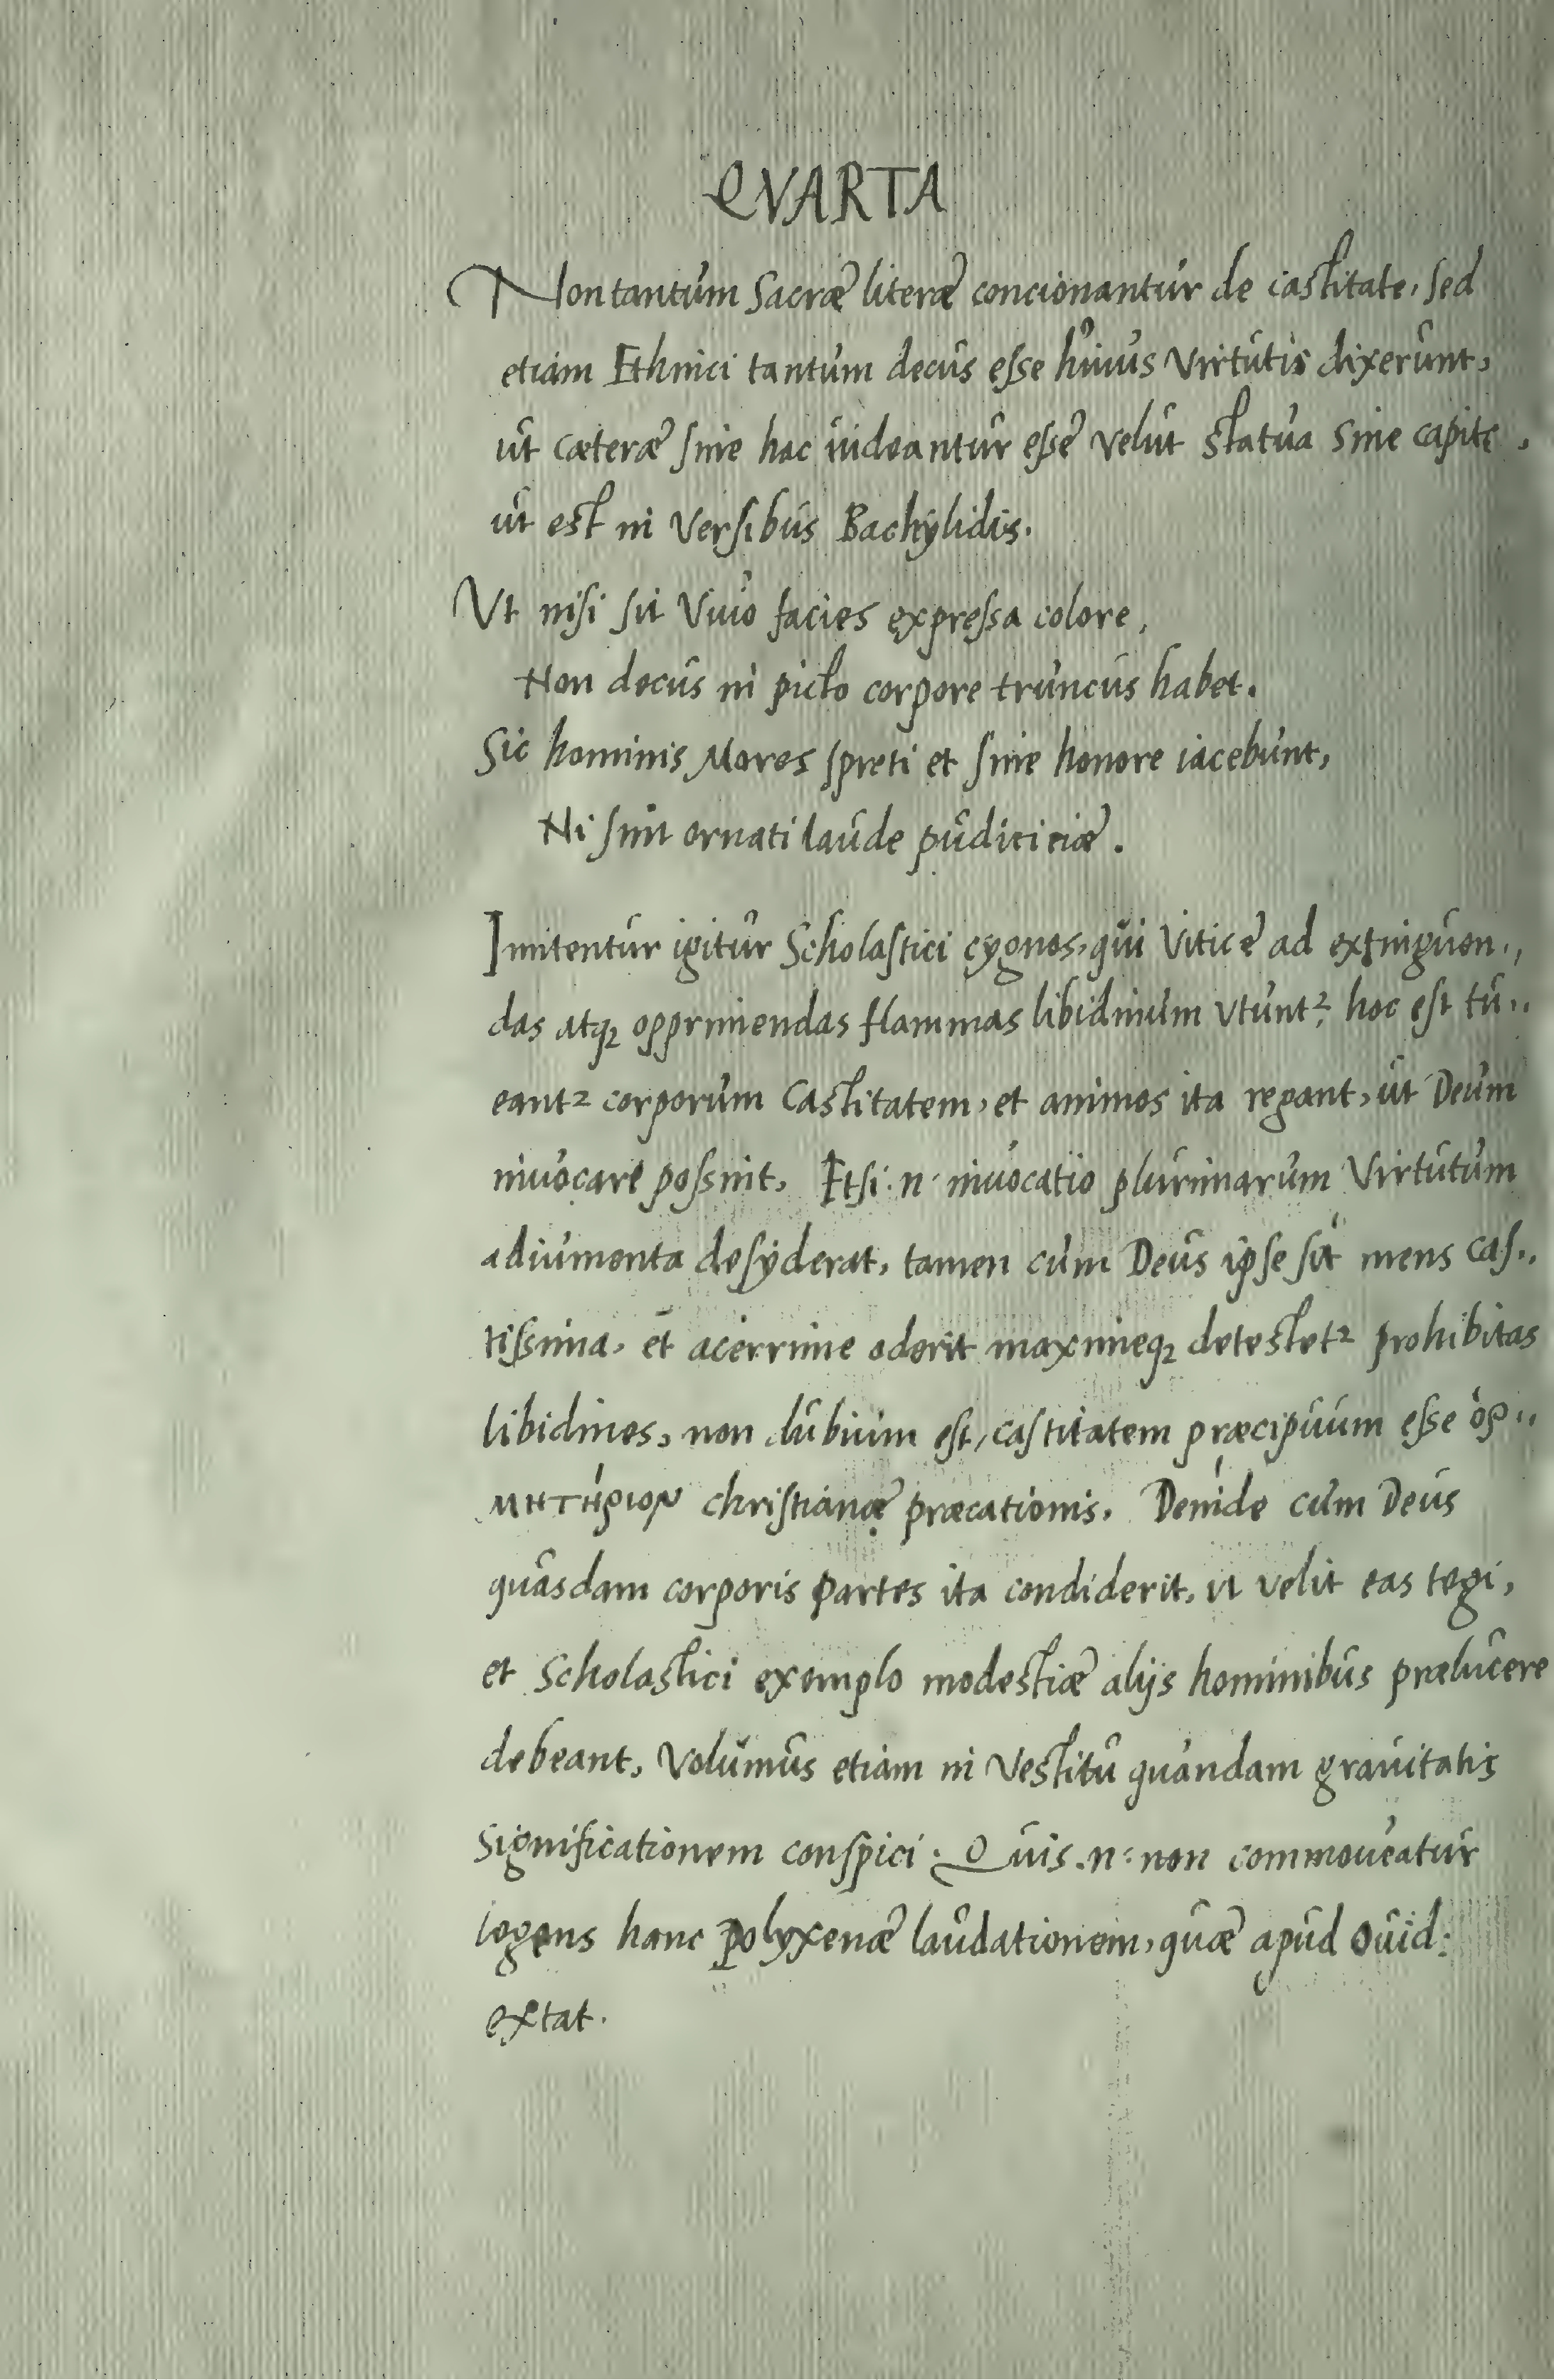 QVARTA
Non tantum Sacræ literæ concionantur de castitate, sed
etiam Ethnici tantum decus esse huius Virtutis dixerunt,
ut cæteræ sine hac uideantur esse velut statua sine capite,
ut est in Versibus Bachylidis.
Vt nisi sit Viuo facies expressa colore,
Non decus in picto corpore truncus habet.
Sic hominis Mores spreti et sine honore iacebunt,
Ni sint ornati laude pudiciciæ.
Imitentur igitur Scholastici cygnos, qui Vitice ad extinguen„
das atq₂ opprimendas flammas libidinum vtunt²: hoc est tu„
eant² corporum Castitatem, et animos ita regant, ut Deum
inuocare possint. Etsi .n. inuocatio plurimarum Virtutum
adiumenta desyderat, tamen cum Deus ipse sit mens cas„
tissima, et acerrime oderit maximeq₂ detestet² prohibitas
libidines, non dubium est, castitatem præcipuum esse ὁρ„
μητήριον christianæ præcationis. Deinde cum Deus
quasdam corporis partes ita condiderit, ut velit eas tegi,
et Scholastici exemplo modestiæ alijs hominibus prælucere
debeant, Volumus etiam in Vestitu quandam grauitatis
significationem conspici. Quis .n: non commoueatur
legens hanc polyxenæ laudationem, quæ apud Ouid:
extat.